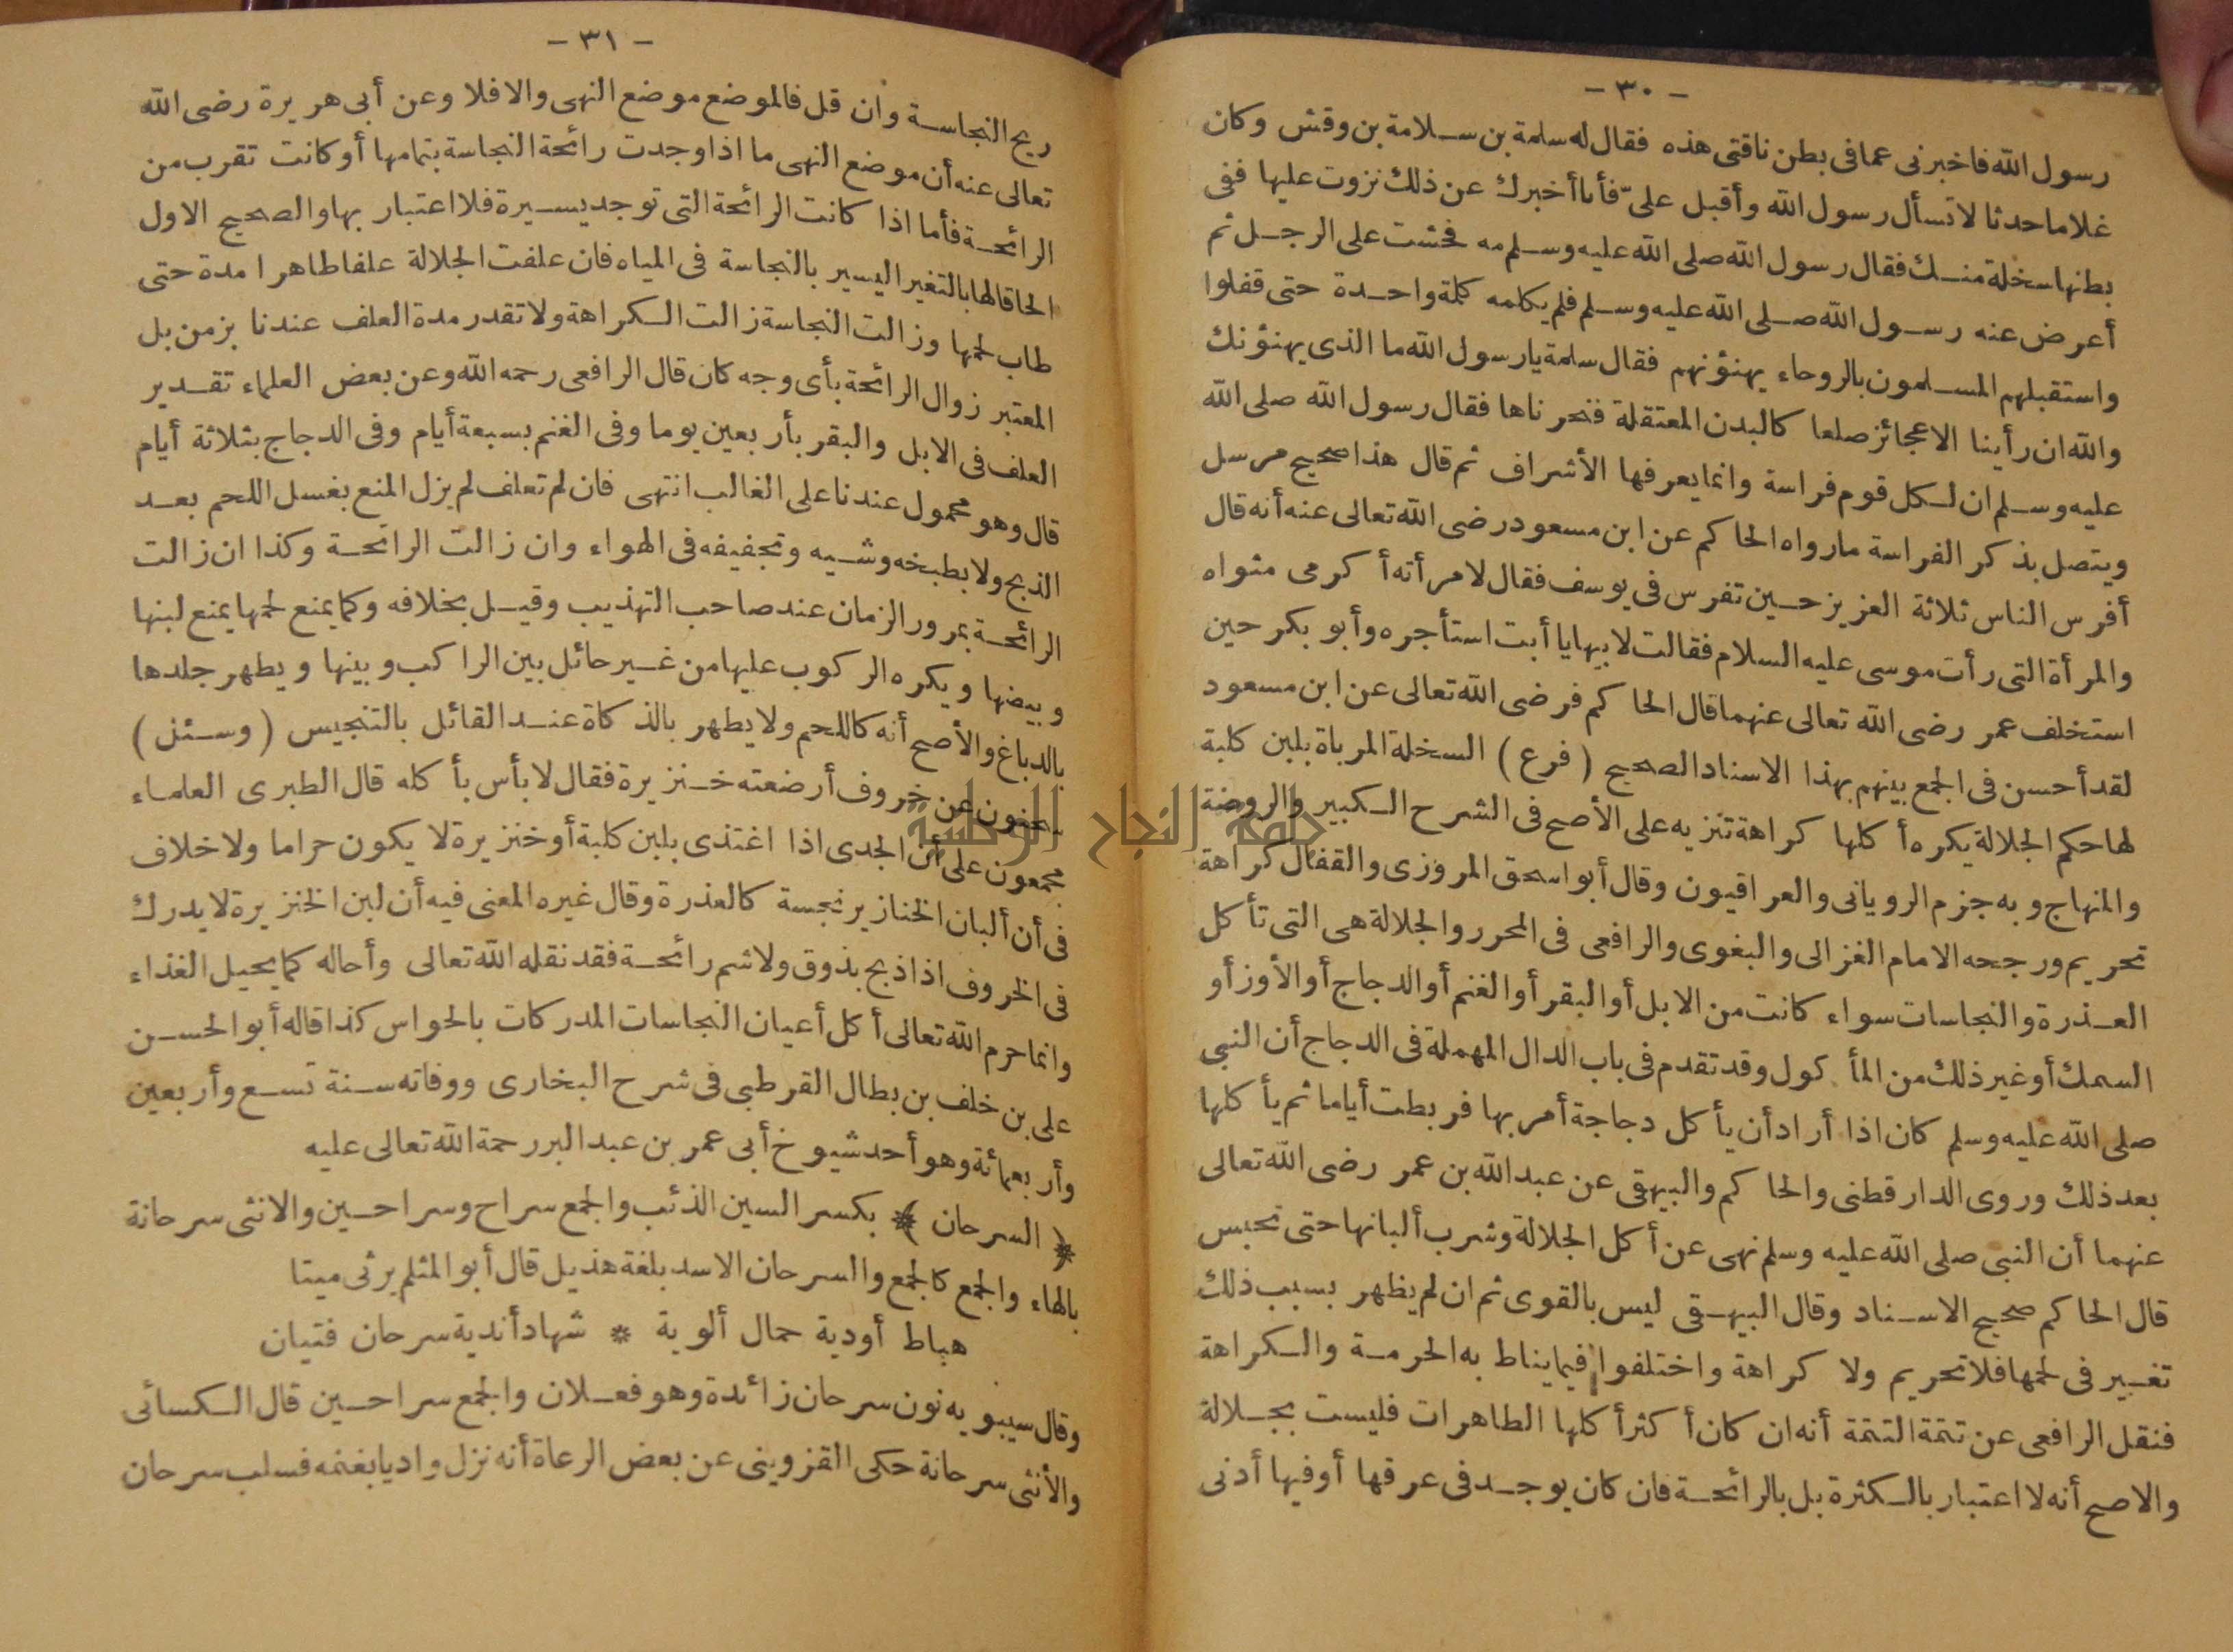 - ٣٠ -
رسول الله فاخبرنى عما فى بطن ناقتى هذه فقال له سلمة بن سلامة بن وقش وكان
غلاما حدثا لا تسأل رسول الله وأقبل علىّ فأنا أخبرك عن ذلك نزوت عليها ففى
بطنها سخلة منك فقال رسول الله صلى الله عليه وسلم مه فحشت على الرجل ثم
أعرض عنه رسول الله صلى الله عليه وسلم فلم يكلمه كلمة واحدة حتى قفلوا
واستقبلهم المسلمون بالروحاء يهنؤنهم فقال سلمة يارسول الله ما الذى يهنؤنك
والله ان رأينا الاعجائز صلعا كالبدن المعتقلة فنحرناها فقال رسول الله صلى الله
عليه وسلم ان لكل قوم فراسة وانما يعرفها الأشراف ثم قال هذا صحيح مرسل
ويتصل بذكر الفراسة مارواه الحاكم عن ابن مسعود رضى الله تعالى عنه أنه قال
أفرس الناس ثلاثة العزيز حين تفرس فى يوسف فقال لامرأته أكرمى مثواه
والمرأة التى رأت موسى عليه السلام فقالت لابيها يا أبت استأجره وأبو بكر حين
استخلف عمر رضى الله تعالى عنهما قال الحاكم فرضى الله تعالى عن ابن مسعود
لقد أحسن فى الجمع بينهم بهذا الاسناد الصحيح (فرع) السخلة المرباة بلبن كلبة
لها حكم الجلالة يكره أكلها كراهة تنزيه على الأصح فى الشرح الكبير والروضة
والمنهاج وبه جزم الرويانى والعراقيون وقال أبو اسحق المروزى والقفال كراهة
تحريم ورجحه الامام الغزالى والبغوى والرافعى فى المحرر والجلالة هى التى تأكل
العذرة والنجاسات سواء كانت من الابل أو البقر أو الغنم أو الدجاج أو الأوز أو
السمك أو غير ذلك من المأكول وقد تقدم فى باب الدال المهملة فى الدجاج أن النبى
صلى الله عليه وسلم كان اذا أراد أن يأكل دجاجة أمر بها فربطت أياما ثم يأكلها
بعد ذلك وروى الدارقطنى والحاكم والبيهقى عن عبد الله بن عمر رضى الله تعالى
عنهما أن النبى صلى الله عليه وسلم نهى عن أكل الجلالة وشرب ألبانها حتى تحبس
قال الحاكم صحيح الاسناد وقال البيهقى ليس بالقوى ثم ان لم يظهر بسبب ذلك
تغيير فى لحمها فلا تحريم ولا كراهة واختلفوا فيما يناط به الحرمة والكراهة
فنقل الرافعى عن تتمة التتمة أنه ان كان أكثر أكلها الطاهرات فليست بجلالة
والاصح أنه لا اعتبار بالكثرة بل بالرائحة فان كان يوجد فى عرقها أو فيها أدنى
- ٣١ -
ريح النجاسة وان قل فالموضع موضع النهى والا فلا وعن أبى هريرة رضى الله
تعالى عنه أن موضع النهى ما اذا وجدت رائحة النجاسة بتمامها أو كانت تقرب من
الرائحة فأما اذا كانت الرائحة التى توجد يسيرة فلا اعتبار بها والصحيح الاول
الحاقا لها بالتغير اليسير بالنجاسة فى المياه فان علفت الجلالة علفا طاهرا مدة حتى
طاب لحمها وزالت النجاسة زالت الكراهة ولا تقدر مدة العلف عندنا بزمن بل
المعتبر زوال الرائحة بأى وجه كان قال الرافعى رحمه الله وعن بعض العلماء تقدير
العلف فى الابل والبقر بأربعين يوما وفى الغنم بسبعة أيام وفى الدجاج بثلاثة أيام
قال وهو محمول عندنا على الغالب انتهى فان لم تعلف لم يزل المنع بغسل اللحم بعد
الذبح ولا بطبخه وشيه وتجفيفه فى الهواء وان زالت الرائحة وكذا ان زالت
الرائحة بمرور الزمان عند صاحب التهذيب وقيل بخلافه وكما يمنع لحمها يمنع لبنها
وبيضها ويكره الركوب عليها من غير حائل بين الراكب وبينها ويطهر جلدها
بالدباغ والأصح أنه كاللحم ولا يطهر بالذكاة عند القائل بالتنجيس (وسئل)
سحنون عن خروف أرضعته خنزيرة فقال لا بأس بأكله قال الطبرى العلماء
مجمعون على أن الجدى اذا اغتذى بلبن كلبة أو خنزيرة لا يكون حراما ولا خلاف
فى أن ألبان الخنازير نجسة كالعذرة وقال غيره المعنى فيه أن لبن الخنزيرة لا يدرك
فى الخروف اذا ذبح بذوق ولا شم رائحة فقد نقله الله تعالى وأحاله كما يحيل الغذاء
وانما حرم الله تعالى أكل أعيان النجاسات المدركات بالحواس كذا قاله أبو الحسن
على بن خلف بن بطال القرطبى فى شرح البخارى ووفاته سنة تسع وأربعين
وأربعمائة وهو أحد شيوخ أبى عمر بن عبد البر رحمة الله تعالى عليه
﴿السرحان﴾ بكسر السين الذئب والجمع سراح وسراحين والانثى سرحانة
بالهاء والجمع كالجمع والسرحان الاسد بلغة هذيل قال أبو المثلم يرثى ميتا
هباط أودية حمال ألوية * شهاد أندية سرحان فتيان
وقال سيبويه نون سرحان زائدة وهو فعلان والجمع سراحين قال الكسائى
والأنثى سرحانة حكى القزوينى عن بعض الرعاة أنه نزل واديا بغنمه فسلب سرحان
جامعة النجاح الوطنية